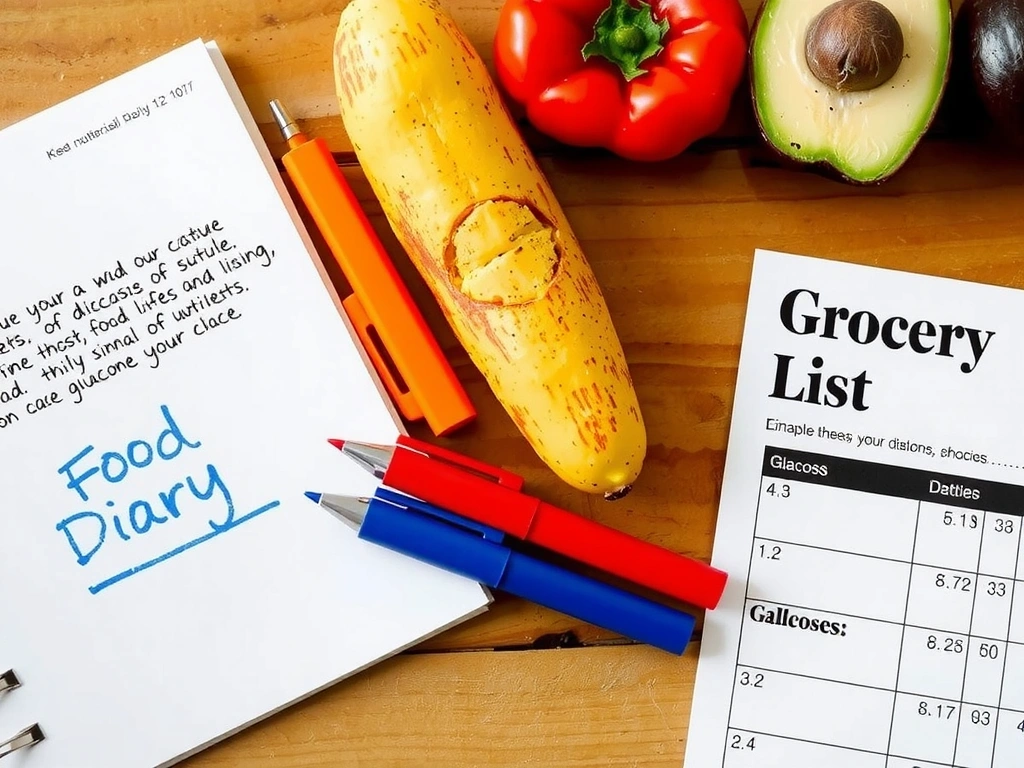 Daily 12 1077
ue your a wud our catue
ets. of diccasis of sutule.
ine thcst, food lifes and lising,
ad. thily sinnal of uvtilests.
on care glucone your clace
Food
Diary
Grocery
List
your distons, shocies......
Glacoss Datties
4.3 5.13 38
1.2 8.72 33
Gallcoses: 8.26 50
3.2 8.17 93 4
2.4